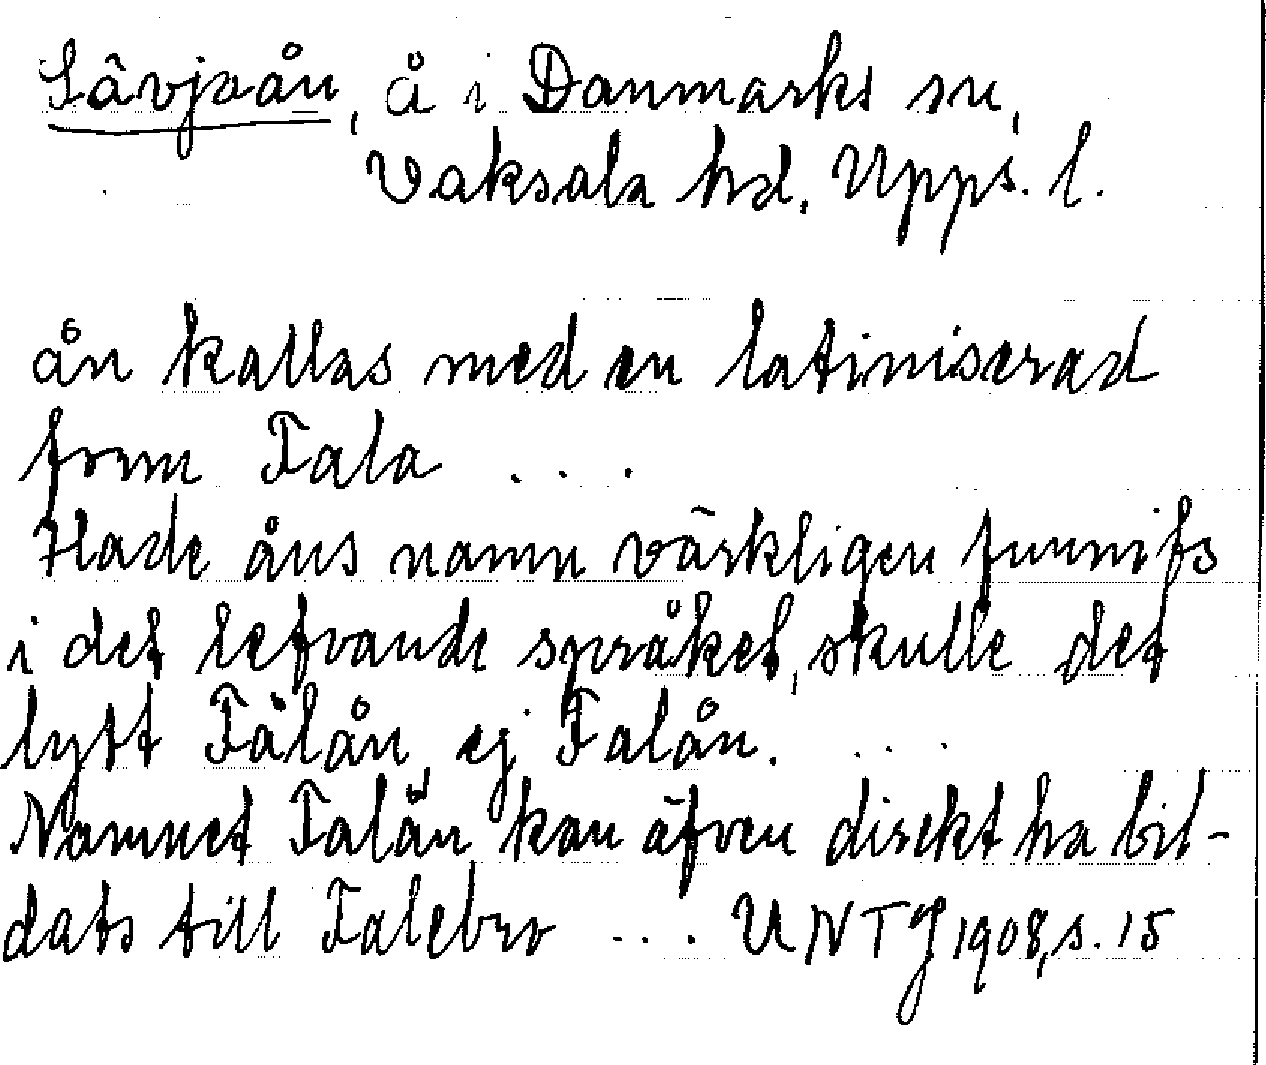 Sävjaån, å i Danmarks sn,
Vaksala hd, Upps. l.
ån kallas med en latiniserad
form Fala ...
Hade åns namn värkligen funnits
i det lefvande språket, skulle det
lytt Fälån, ej Falån. ...
Namnet Falån kan äfven direkt ha bil-
dats till Falebro ... UNTg 1908, s. 15